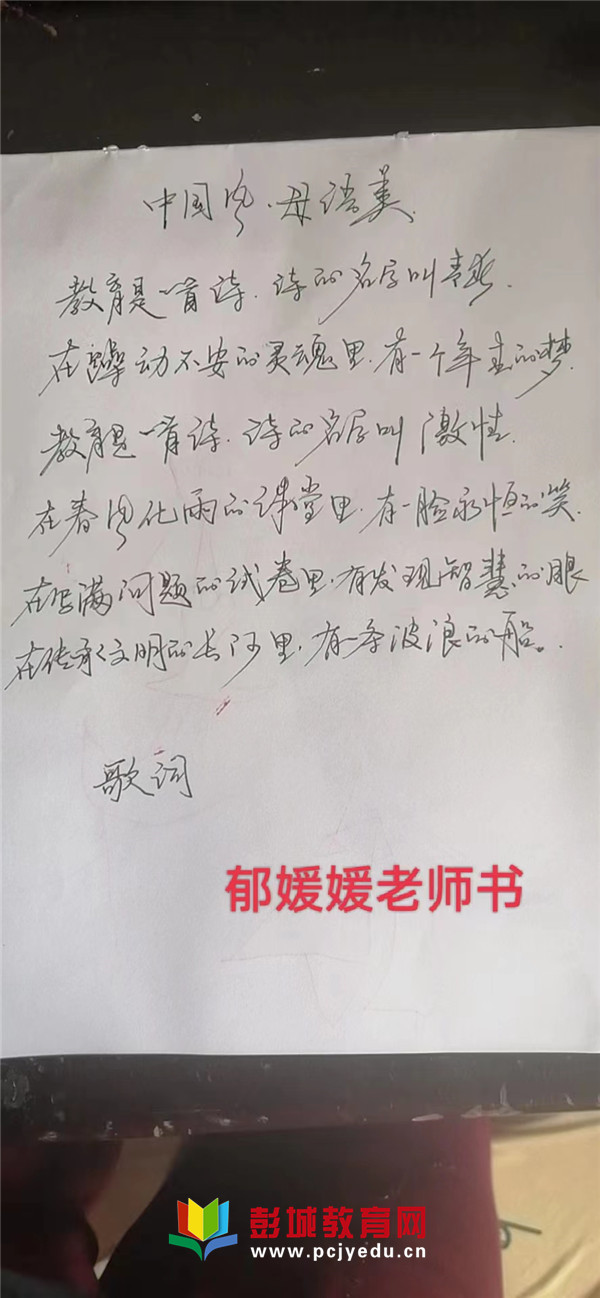 中国风·母语美
教育是一首诗.诗的名字叫青春.
在躁动不安的灵魂里.有一个年主的梦.
教育是一首诗.诗的名字叫激情.
在春风化雨的课堂里.有一脸永恒的笑.
在写满问题的试卷里.有发现智慧的眼
在传承文明的长河里,有一条波浪的船。
歌词
郁媛媛老师书
彭城教育网
www.pcjyedu.cn